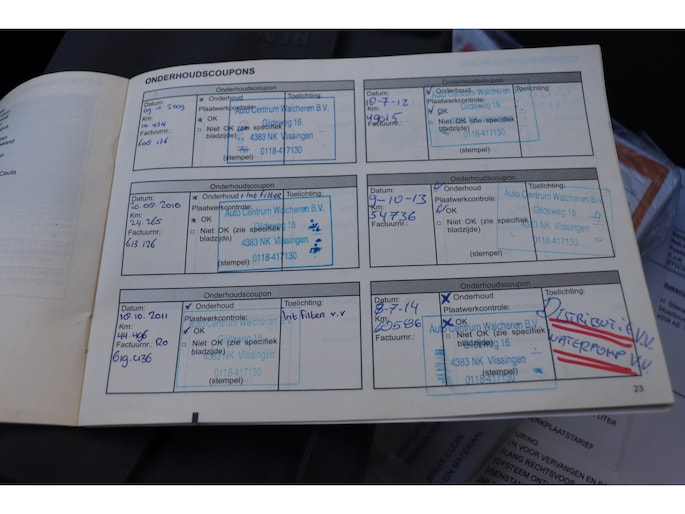 Ceuta
ONDERHOUDSCOUPONS
Onderhoudscoupon
Datum:
Km:
Factuurnr.:
Onderhoud
Plaatwerkcontrole:
OK
Niet OK (zie specifiek
bladzijde)
(stempel)
Toelichting:
Auto Centrum Walcheren B.V.
Gildeweg 16
4383 NK Vlissingen
0118-417130
Onderhoudscoupon
Datum:
20.09.2010
Km:
24.265
Factuurnr.:
613 126
Onderhoud + Int filter
Plaatwerkcontrole:
OK
Niet OK (zie specifiek
bladzijde)
(stempel)
Toelichting:
Auto Centrum Walcheren B.V.
Gildeweg 16
4383 NK Vlissingen
0118-417130
Onderhoudscoupon
Datum:
18.10.2011
Km:
44.466
Factuurnr.: Ro
619.436
Onderhoud
Plaatwerkcontrole:
OK
Niet OK (zie specifiek
bladzijde)
(stempel)
Toelichting:
Int filter v.v
Auto Centrum Walcheren B.V.
Gildeweg 16
4383 NK Vlissingen
0118-417130
Onderhoudscoupon
Datum:
18-7-12
Km:
49015
Factuurnr.:
Onderhoud
Plaatwerkcontrole:
OK
Niet OK (zie specifiek
bladzijde)
(stempel)
Toelichting:
Auto Centrum Walcheren B.V.
Gildeweg 16
4383 NK Vlissingen
0118-417130
Onderhoudscoupon
Datum:
9-10-13
Km:
54736
Factuurnr.:
Onderhoud
Plaatwerkcontrole:
OK
Niet OK (zie specifiek
bladzijde)
(stempel)
Toelichting:
Auto Centrum Walcheren B.V.
Gildeweg 16
4383 NK Vlissingen
0118-417130
Onderhoudscoupon
Datum:
8-7-14
Km:
Factuurnr.:
Onderhoud
Plaatwerkcontrole:
OK
Niet OK (zie specifiek
bladzijde)
(stempel)
Toelichting:
DISTRIBUTIE V.V.
WATERPOMP V.V
Auto Centrum Walcheren B.V.
Gildeweg 16
4383 NK Vlissingen
0118-417130
23